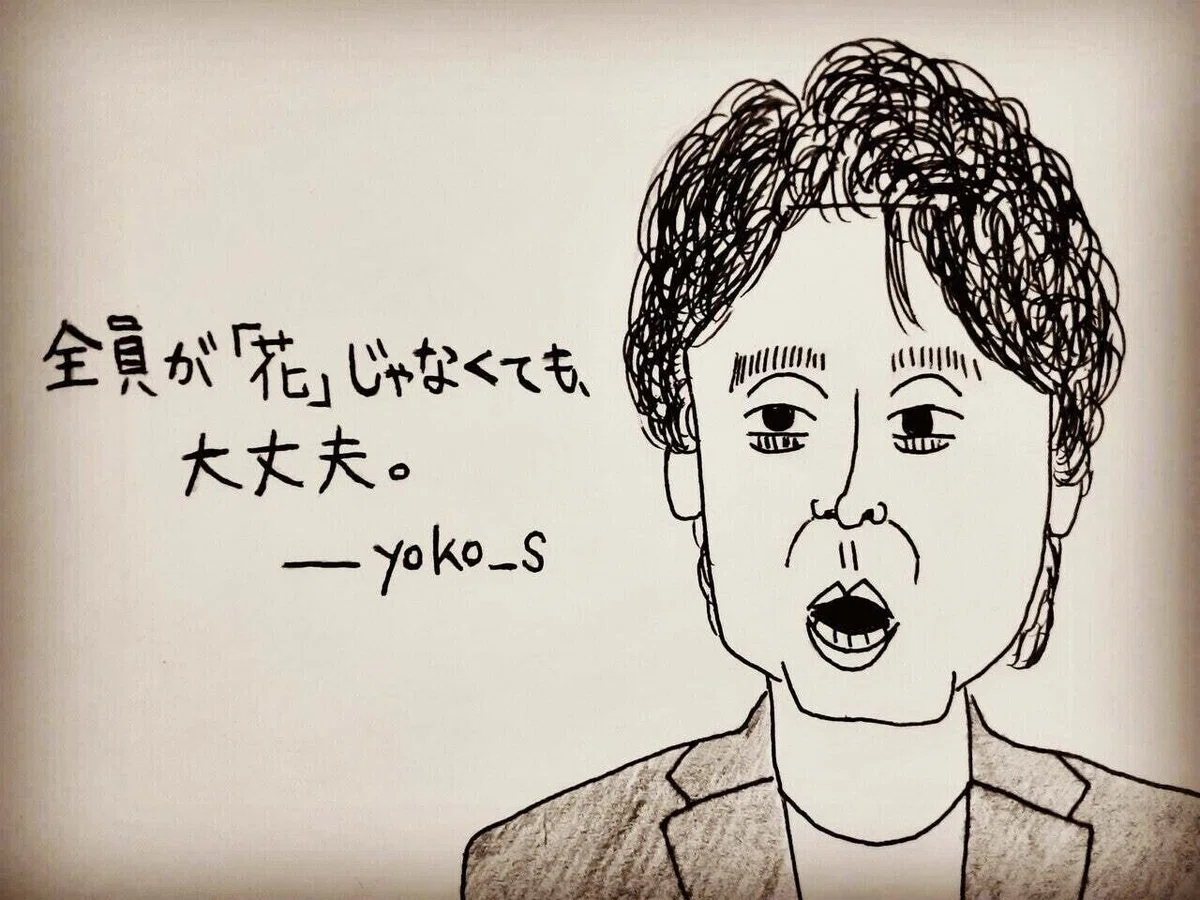 全員が「花」じゃなくても、
大丈夫。
— yoko_s